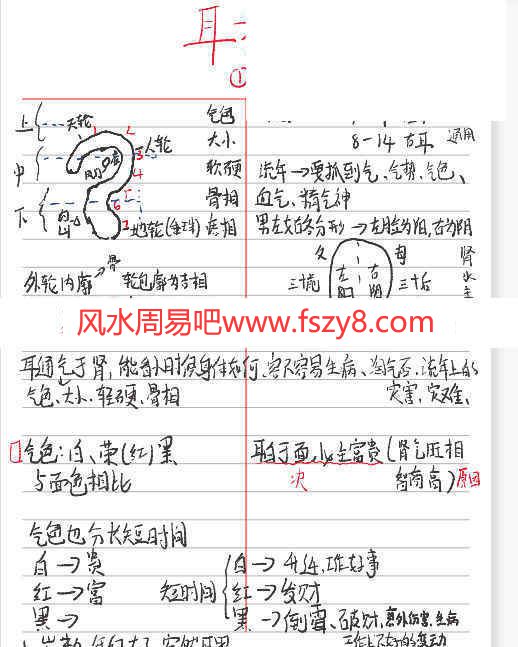 耳
①
上 天轮 1 2 气色
人轮 大小 8-14 右耳 通用
中 3 4 软硬 流年→要抓到气、气势、气色、
5 骨相 血气、精气神
下 6 7 地轮(垂珠) 质相 男左女右各分形→左脸为阳,右为阴
父 母 肾
外轮内廓→骨 轮包廓为吉相 三十前 左阳 右阴 三十后 水
风水周易吧www.fszy8.com
耳通气于肾,能看小时候身体如何、容不容易生病、淘气否、流年上的
气色、大小、轻硬、骨相 灾害、灾难、
1 气色:白、荣(红)黑 耳白于面,必主富贵(肾气旺相
与面色相比 次 智商高) 原因
气色也分长短时间
白→贵 白→升迁、工作好事
红→富 短时间 红→发财
黑→ 黑→倒霉、破财、意外伤害、生病